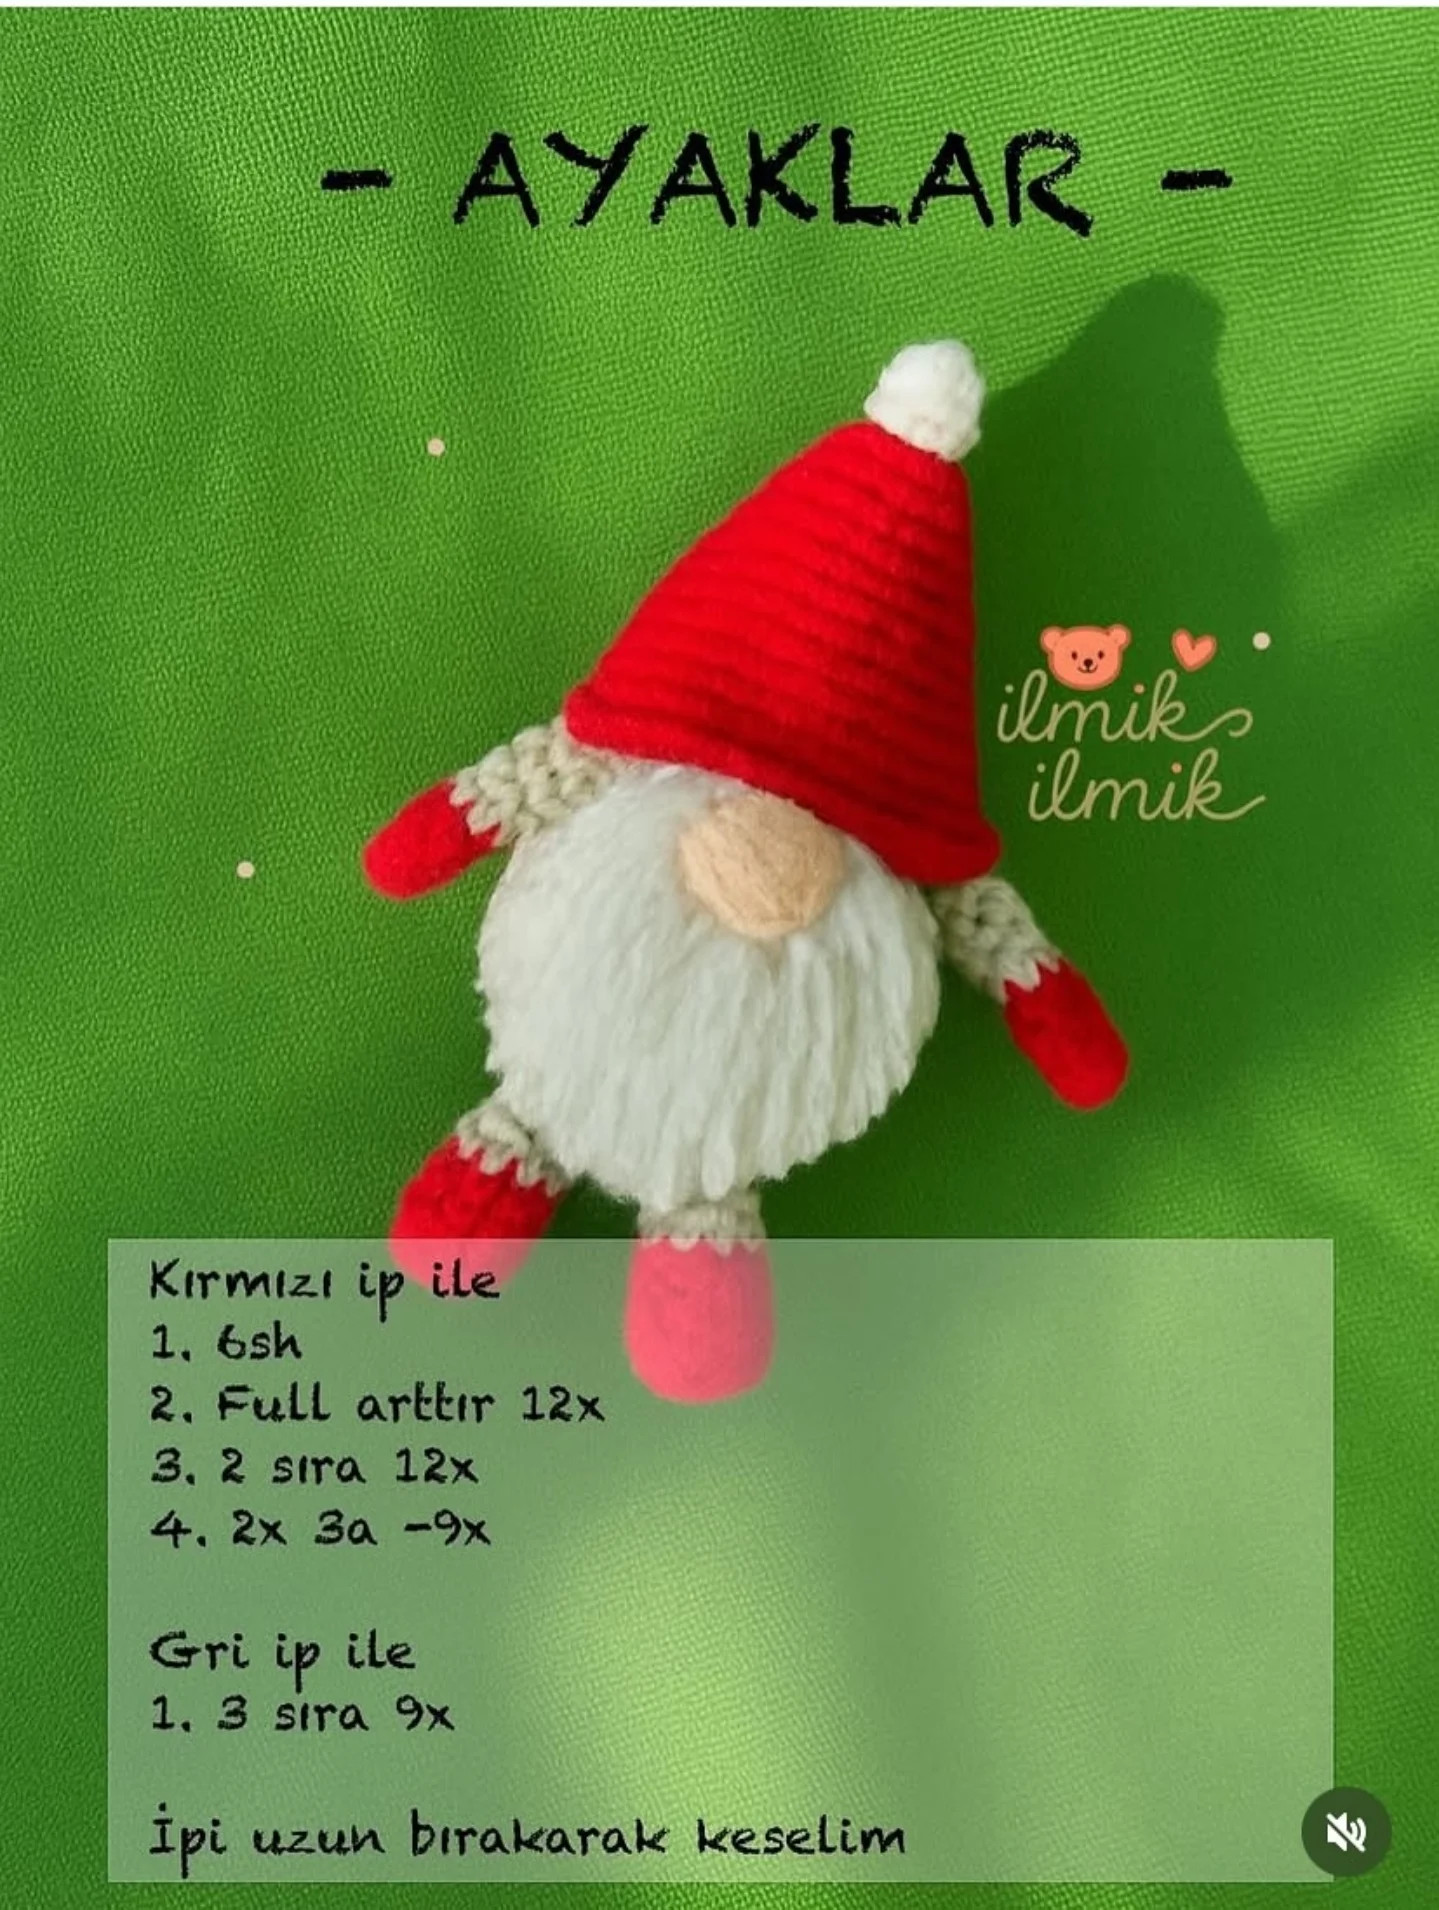 - AYAKLAR -
ilmik
ilmik
Kırmızı ip ile
1. 6sh
2. Full arttır 12x
3. 2 sıra 12x
4. 2x 3a -9x
Gri ip ile
1. 3 sıra 9x
İpi uzun bırakarak keselim